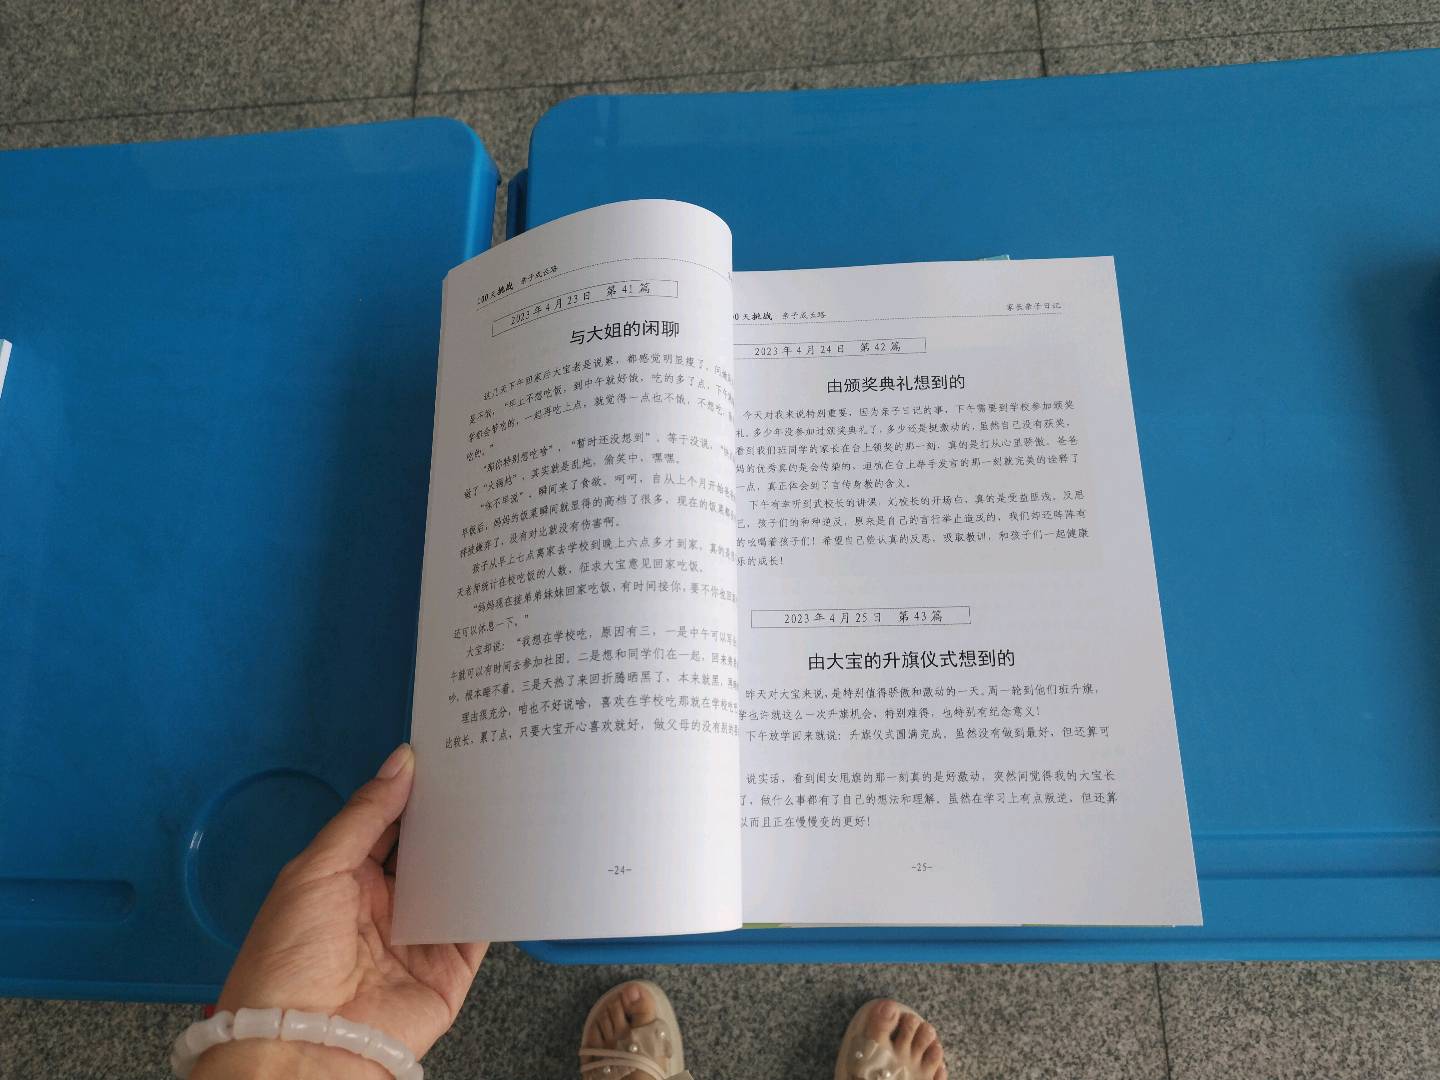 00天挑战 亲子成长路
2023年4月23日 第41篇
与大姐的闲聊
这几天下午回家后大宝老是说累,都感觉明显瘦了,问
是不饿,“早上不想吃饭,到中午就好饿,吃的多了点,下午
学都会带吃的,一起再吃上点,就觉得一点也不饿,不想吃,
吃吧。”
“那你特别想吃啥”,“暂时还没想到”,等于没说,
做了“火锅炖”,其实就是乱炖,偷笑中,嘿嘿。
“你不早说”,瞬间来了食欲。呵呵,自从上个月开始
早饭后,妈妈的饭菜瞬间就显得的高档了很多,现在的饭菜都
样被嫌弃了,没有对比就没有伤害啊。
孩子从早上七点离家去学校到晚上六点多才到家,真的
天老师统计在校吃饭的人数,征求大宝意见回家吃饭。
“妈妈现在接弟弟妹妹回家吃饭,有时间接你,要不你也回
还可以休息一下。”
大宝却说:“我想在学校吃,原因有三,一是中午可以写
午就可以有时间去参加社团。二是想和同学们在一起,回来
吵,根本睡不着。三是天热了来回折腾晒黑了,本来就黑,
理由很充分,咱也不好说啥,喜欢在学校吃那就在学校吃
比较长,累了点,只要大宝开心喜欢就好,做父母的没有
-24-
00天挑战 亲子成长路
家长亲子日记
2023年4月24日 第42篇
由颁奖典礼想到的
今天对我来说特别重要,因为亲子日记的事,下午需要到学校参加颁奖
礼,多少年没参加过颁奖典礼了,多少还是挺激动的,虽然自己没有获奖,
看到我们班同学的家长在台上领奖的那一刻,真的是打从心里骄傲。爸爸
妈的优秀真的是会传染的,垣杭在台上举手发言的那一刻就完美的诠释了
一点,真正体会到了言传身教的含义。
下午有幸听到武校长的讲课,尤校长的开场白,真的是受益匪浅。反思
己,孩子们的种种逆反,原来是自己的言行举止造成的,我们却还阵阵有
的吆喝着孩子们!希望自己能认真的反思,汲取教训,和孩子们一起健康
乐的成长!
2023年4月25日 第43篇
由大宝的升旗仪式想到的
昨天对大宝来说,是特别值得骄傲和激动的一天。周一轮到他们班升旗,
学也许就这么一次升旗机会,特别难得,也特别有纪念意义!
下午放学回来就说:升旗仪式圆满完成,虽然没有做到最好,但还算可
说实话,看到闺女甩旗的那一刻真的是好激动,突然间觉得我的大宝长
了,做什么事都有了自己的想法和理解。虽然在学习上有点叛逆,但还算
以而且正在慢慢变的更好!
-25-